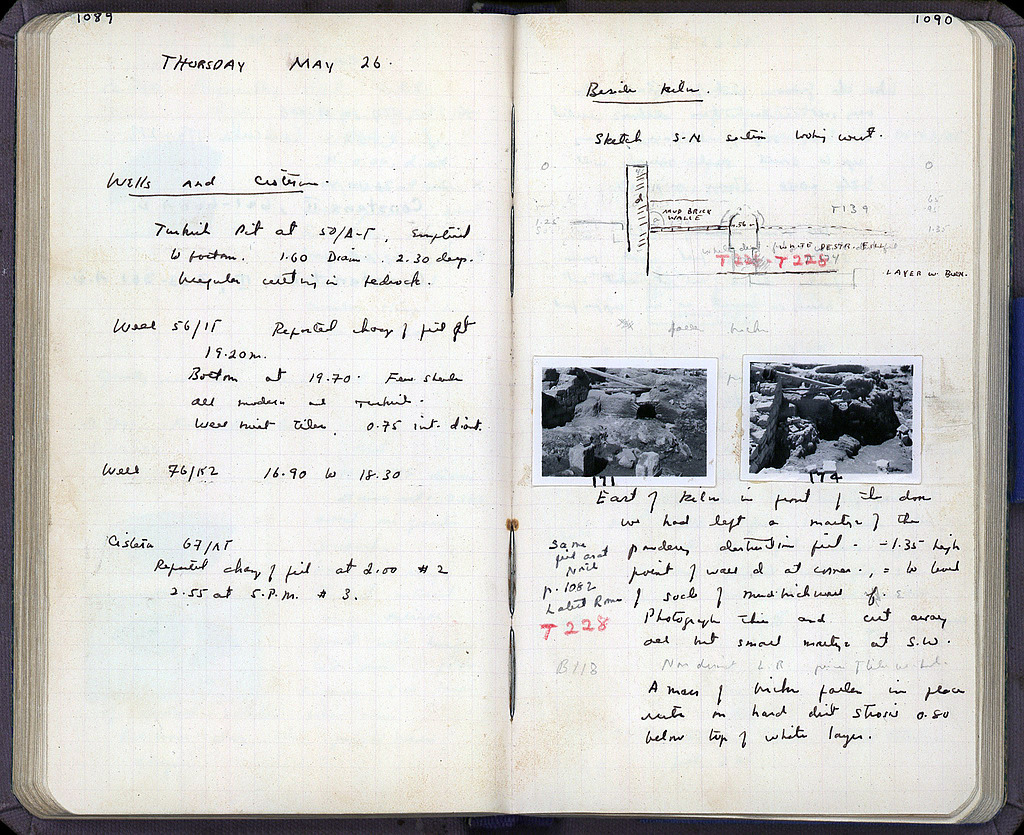 1089
THURSDAY MAY 26.
Wells and Cisterns.
Turkish Pit at 50/A-T, Emptied
to bottom. 1.60 Diam. 2.30 deep.
Irregular cutting in bedrock.
Well 56/IT Reported chang of fill at
19.20m.
Bottom at 19.70. Few sherds
all modern and Turkish.
Well with tiles, 0.75 int. diam.
Well 76/K2 16.90 to 18.30
Cistern 67/AT
Reported chang of fill at 2.00 #2
2.55 at 5.P.M. #3.
1090
Beside kiln.
Sketch S-N section looking west.
0. 0
1.25
MUD BRICK
WALL
a
.56
T139
.65
.95
1.35
(WHITE DESTR. FILL)
T 228
LAYER W. BURN.
fallen bricks
171 174
East of kiln in front of the door
we had left a martyr of the
powdery destruction fill. -1.35 high
point of wall d at corner, = to level
of socle of mudbrick wall
Photograph this and cut away
all but small martyr at S.W.
Same
fill as at
North
p. 1082
Latest Roman
T 228
B118
A mass of bricks fallen in place
rests on hard dirt strosis 0.80
below top of white layer.